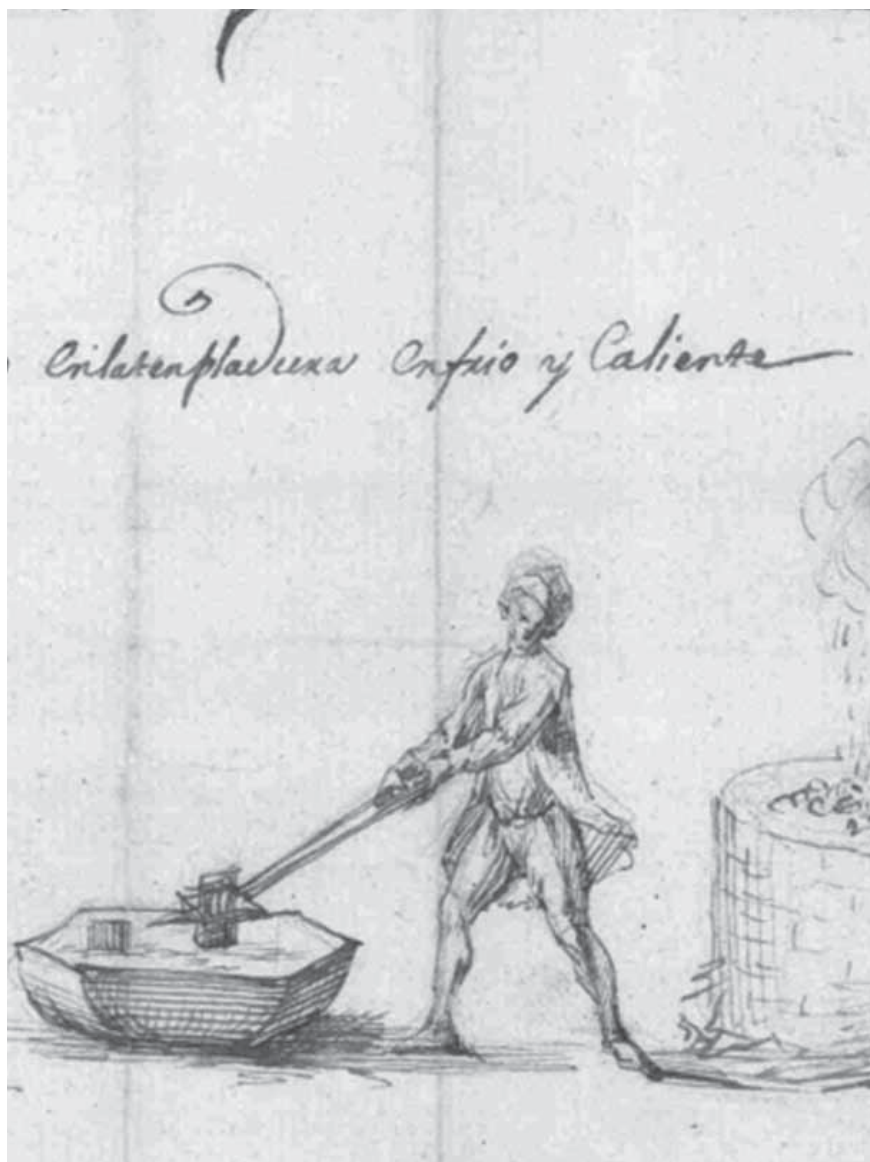 Enlatenpladura Enfrio y Caliente